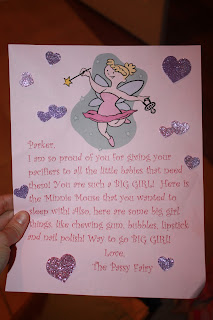 Parker,
I am so proud of you for giving your
pacifiers to all the little babies that need
them! You are such a BIG GIRL! Here is
the Minnie Mouse that you wanted to
sleep with! also, here are some big girl
things, like chewing gum, bubbles, lipstick
and nail polish! Way to go BIG GIRL!
Love,
The Passy Fairy